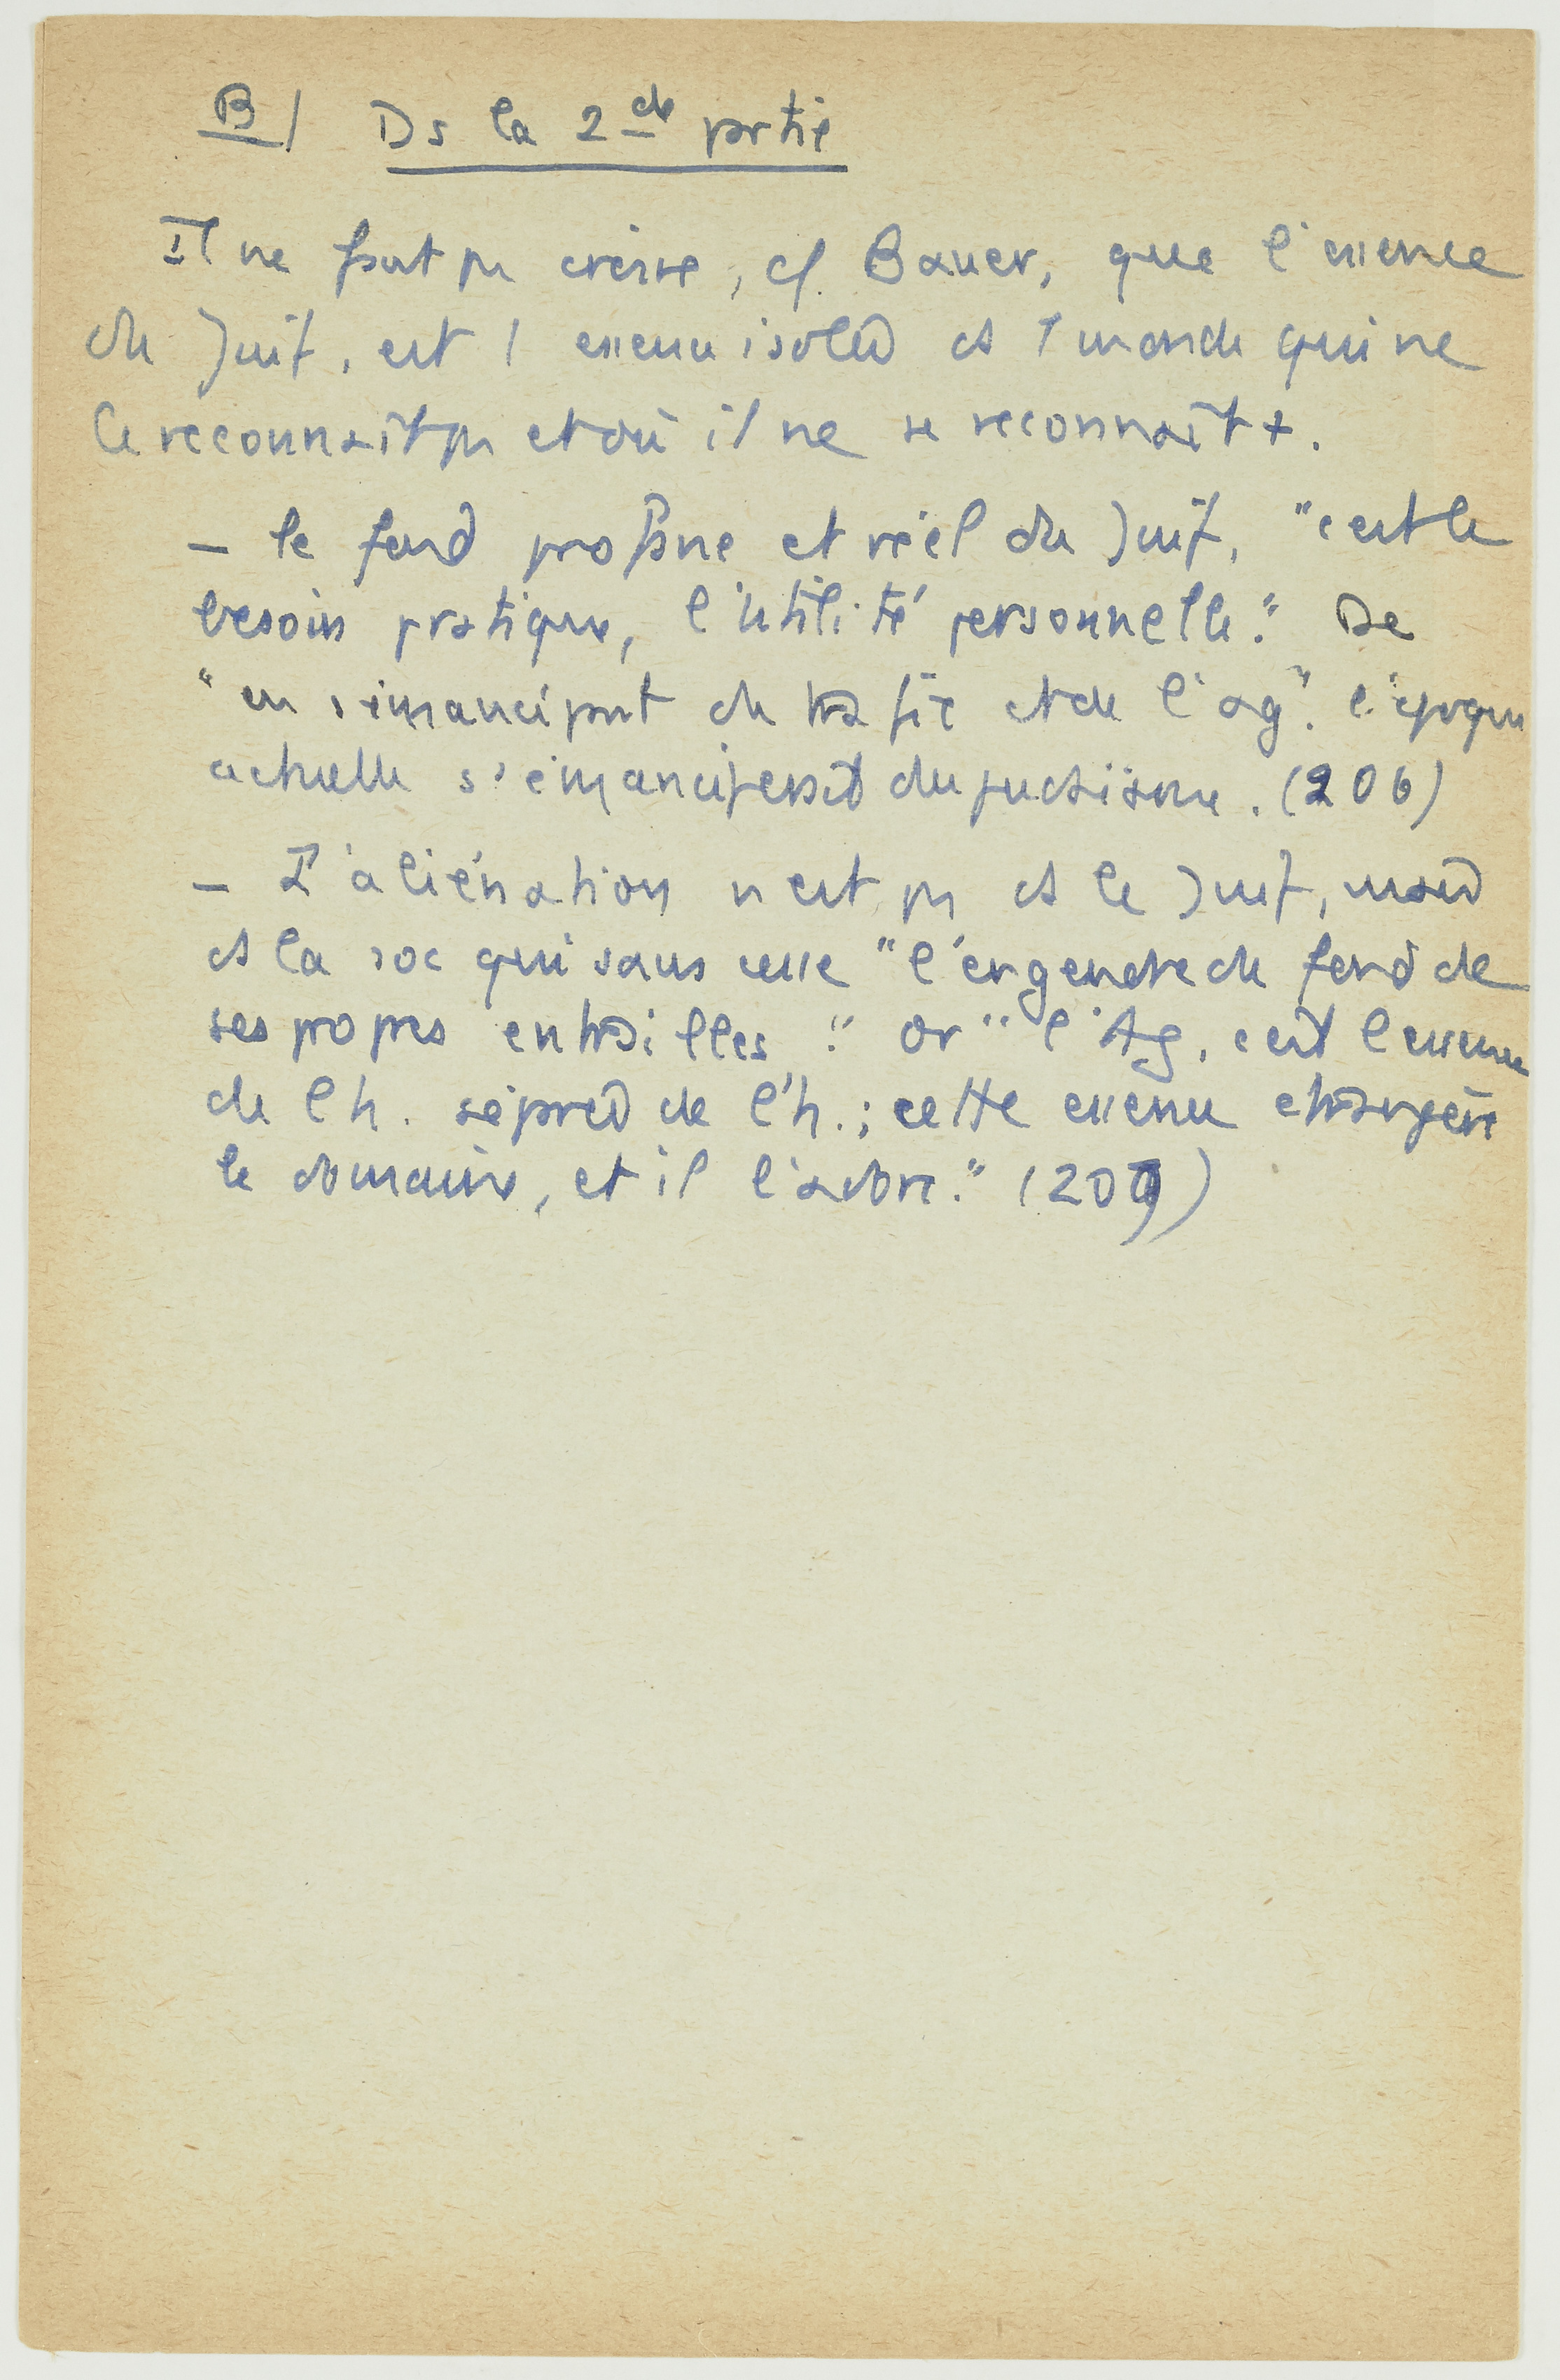 B/ Ds la 2de partie
Il ne faut pas croire, cf. Bauer, que l'essence
du Juif, est 1 essence isolée ds 1 monde qui ne
le reconnaît pas et où il ne se reconnaît +.
– le fond profane et réel du Juif, "c'est le
besoin pratique, l'utilité personnelle." De
"en s'émancipant du trafic et de l'ag". l'époque
actuelle s'émanciperait du judaïsme. (206)
– L'aliénation n'est pas ds le Juif, mais
ds la soc qui sans cesse "l'engendre du fond de
ses propres entrailles". or "l'Ag, c'est l'essence
de l'h. séparée de l'h.; cette essence étrangère
le domine, et il l'adore." (209)